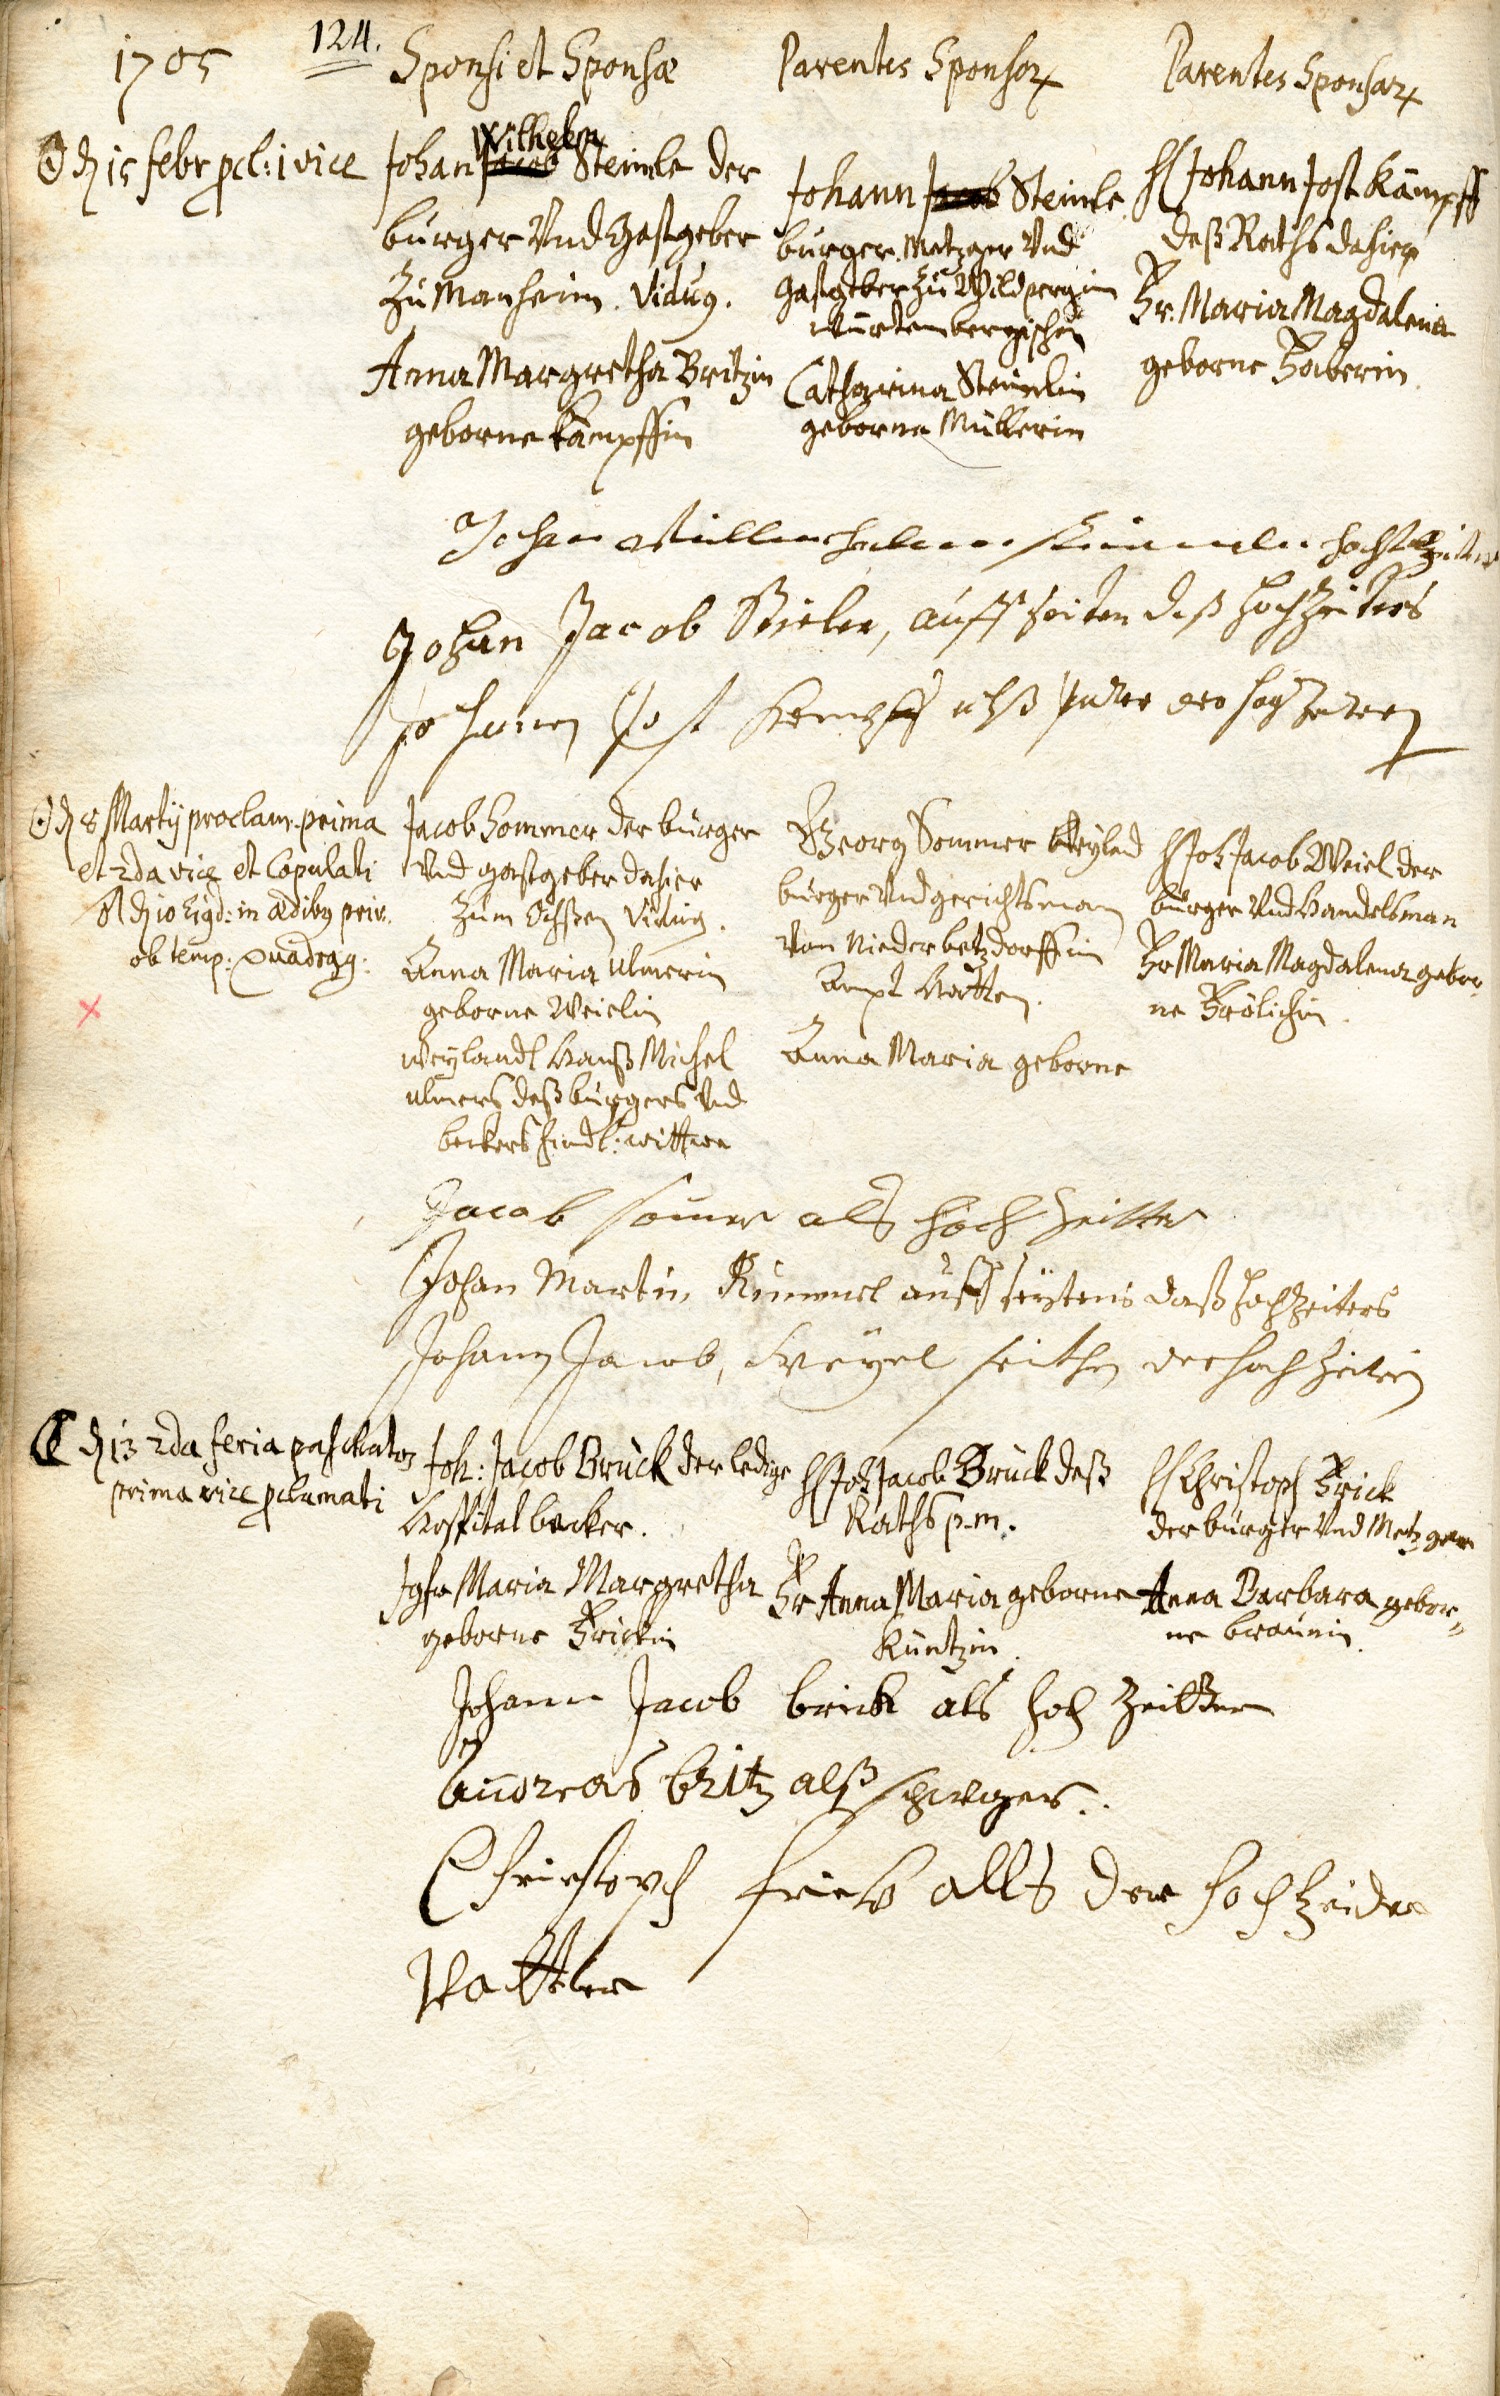 1705
124.
Sponsi et Sponsæ
Parentes Sponsor
Parentes Sponsar
15 febr pcl: 1 vice
Johan Jacob Wilhelm Steimle der
burger Vnd Gastgeber
zu Manheim. Vidus.
Anna Margretha Britzin
geborne Kämpffin
Johann Jacob Steimle
burger, Metzger Vnd
Gastgeber zu Wildperg im
Würtembergischen
Catharina Steimlin
geborne Müllerin
H Johann Jost Kämpff
deß Raths dahier
Fr. Maria Magdalena
geborne Faberin
Johan hochzeiter
Johan Jacob auff seiten deß hochzeiters
Johann Jost Kempff alß
8 Martij proclam. prima
et 2da vice et Copulati
10 Eijd: in ædibus priv.
ob temp: Quadrag:
Jacob Sommer der burger
Vnd gastgeber dahier
zum Ochßen Viduus.
Anna Maria Ulmerin
geborne Weielin
Weylandt Hanß Michel
Ulmers deß burgers Vnd
beckers hindl: wittwe
Georg Sommer Weyland
burger Vnd gerichtsman
von Niederbetzdorff im
Ampt Hatten.
Anna Maria geborne
H Joh Jacob Weiel der
burger Vnd Handelsman
Fr Maria Magdalena gebor,
ne Frölichin.
Jacob somer als hoch zeitter
Johan Martin Kimmel auff seytens daß hochzeiters
Johann Jacob, Weyel seithen der hochzeiterin
13 2da feria paschatos
prima vice pclamati
Joh: Jacob Brück der ledige
Hospitalbecker.
Jgfr Maria Margretha
geborne Frickin
H Joh Jacob Brück deß
Raths p.m.
Fr Anna Maria geborne
Küntzin.
H Christoph Frick
der burger Vnd Metzger
Anna Barbara gebor„
ne Braunin.
Johann Jacob brick als hoch zeitter
andreas britz alß schwager.
Christoph frick alls der hochzeider
Vatter